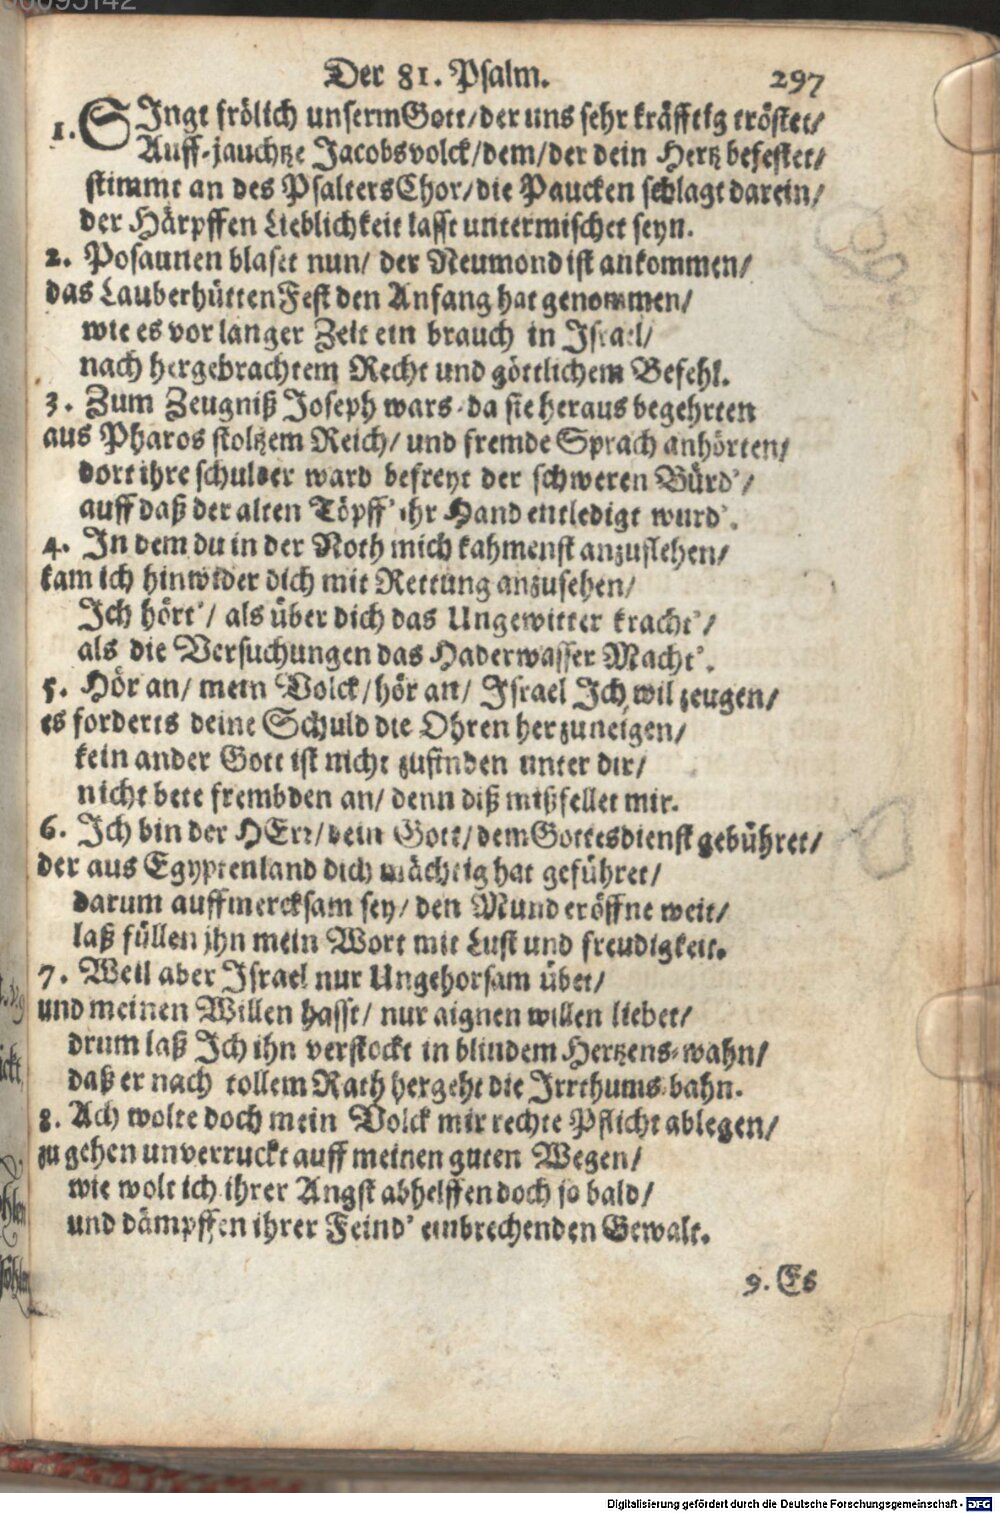 Der 81. Psalm. 297
1. SIngt frölich unserm Gott/ der uns sehr kräfftig tröstet/
Auff-jauchtze Jacobs volck/ dem/ der dein Hertz befestet/
stimmt an des Psalters Chor/ die Paucken schlagt darein/
der Härpffen Lieblichkeit lasst untermischet seyn.
2. Posaunen blaset nun/ der Neumond ist ankommen/
das Lauberhütten Fest den Anfang hat genommen/
wie es vor langer Zeit ein brauch in Israel/
nach hergebrachtem Recht und göttlichem Befehl.
3. Zum Zeugniß Joseph wars, da sie heraus begehrten
aus Pharos stoltzem Reich/ und fremde Sprach anhörten/
dort ihre schulder ward befreyt der schweren Bürd'/
auff daß der alten Töpff' ihr Hand entledigt wurd'.
4. In dem du in der Noth mich kahmenst anzuflehen/
kam ich hinwider dich mit Rettung anzusehen/
Ich hört'/ als über dich das Ungewitter kracht'/
als die Versuchungen das Haderwasser Macht'.
5. Hör an/ mein Volck/ hör an/ Israel Ich wil zeugen/
es forderts deine Schuld die Ohren herzuneigen/
kein ander Gott ist nicht zufinden unter dir/
nicht bete frembden an/ denn diß mißfellet mir.
6. Ich bin der HErr/ dein Gott/ dem Gottesdienst gebühret/
der aus Egyptenland dich mächtig hat geführet/
darum auffmercksam sey/ den Mund eröffne weit/
laß füllen ihn mein Wort mit Lust und freudigkeit.
7. Weil aber Israel nur Ungehorsam übet/
und meinen Willen hasst/ nur aignen willen liebet/
drum laß Ich ihn verstockt in blindem Hertzens-wahn/
daß er nach tollem Rath hergeht die Irrthums-bahn.
8. Ach wolte doch mein Volck mir rechte Pflicht ablegen/
zu gehen unverruckt auff meinen guten Wegen/
wie wolt ich ihrer Angst abhelffen doch so bald/
und dämpffen ihrer Feind' einbrechenden Gewalt.
9. Es
Digitalisierung gefördert durch die Deutsche Forschungsgemeinschaft - DFG